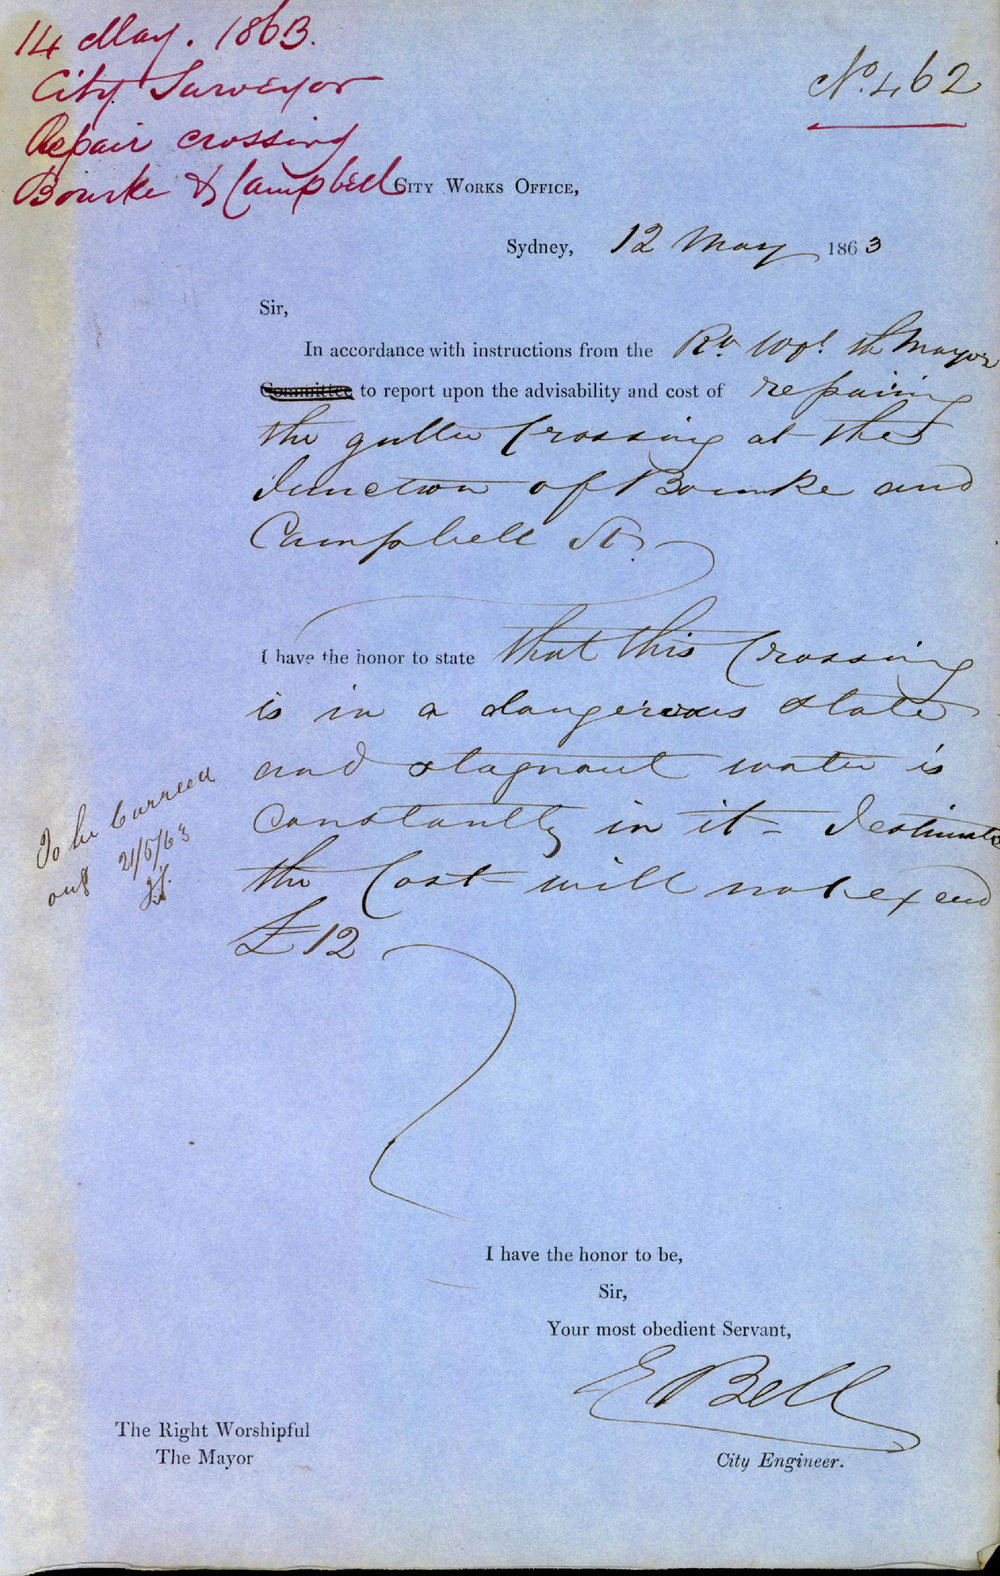 14 May. 1863.
City Surveyor
Repair crossing
Bourke & Campbell
No. 462
City Works Office,
Sydney, 12 May 1863
Sir,
In accordance with instructions from the Rt. Wopl. the Mayor
Committee to report upon the advisability and cost of repairing
the gutter Crossing at the
Junction of Bourke and
Campbell St.
I have the honor to state that this Crossing
is in a dangerous state
and stagnant water is
Constantly in it - I estimate
the Cost will not exceed
£12
To be Carried
out 21/5/63
I have the honor to be,
Sir,
Your most obedient Servant,
E Bell
City Engineer.
The Right Worshipful
The Mayor